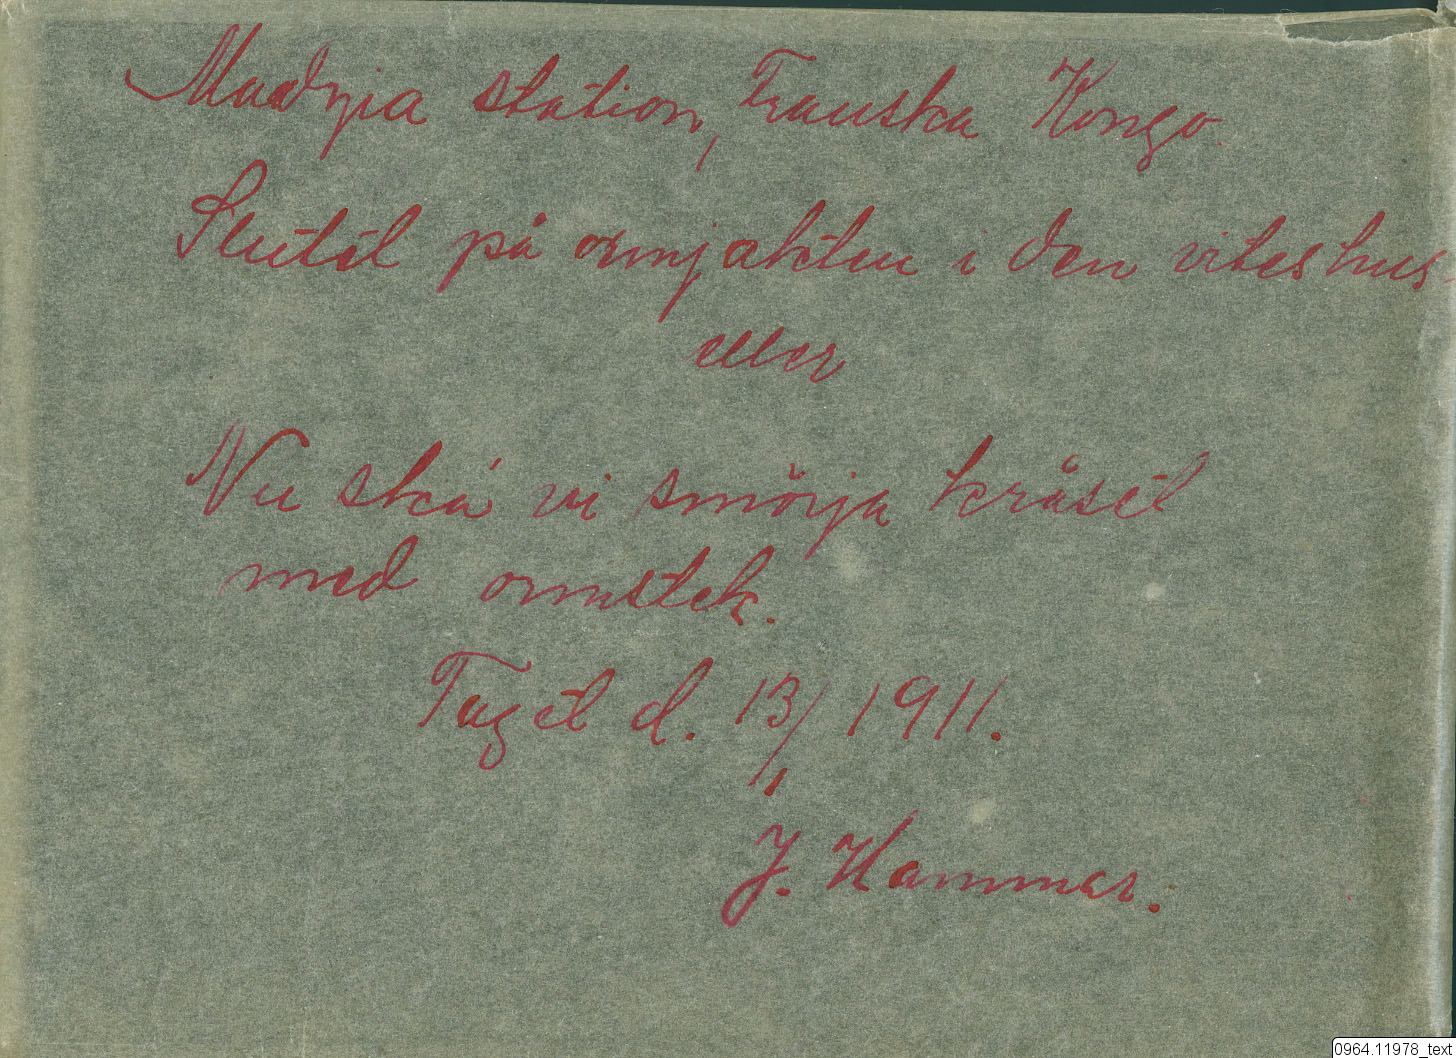 Madzia station, Franska Kongo.
Slutet på ormjakten i den vites hus-
eller
Nu ska' vi smörja kråset
med ormstek.
Taget d. 13/11 1911.
J. Hammar.
0964.11978_text